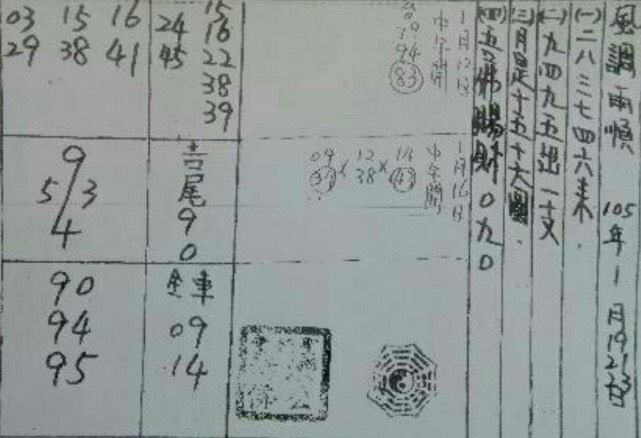 風調雨順 105年1月19 21 23
(一)二八三七四六來.
(二)九四九五逗一支
(三)月是十五十六圓.
(四)五路賜財 0九0
1月12日
中午開
19
94
83
1月16日
中午開
09 12 14
38
15
24 16
45 22
38
39
吉尾
9
0
全車
09
14
03 15 16
29 38 41
9
5/3
4
90
94
95